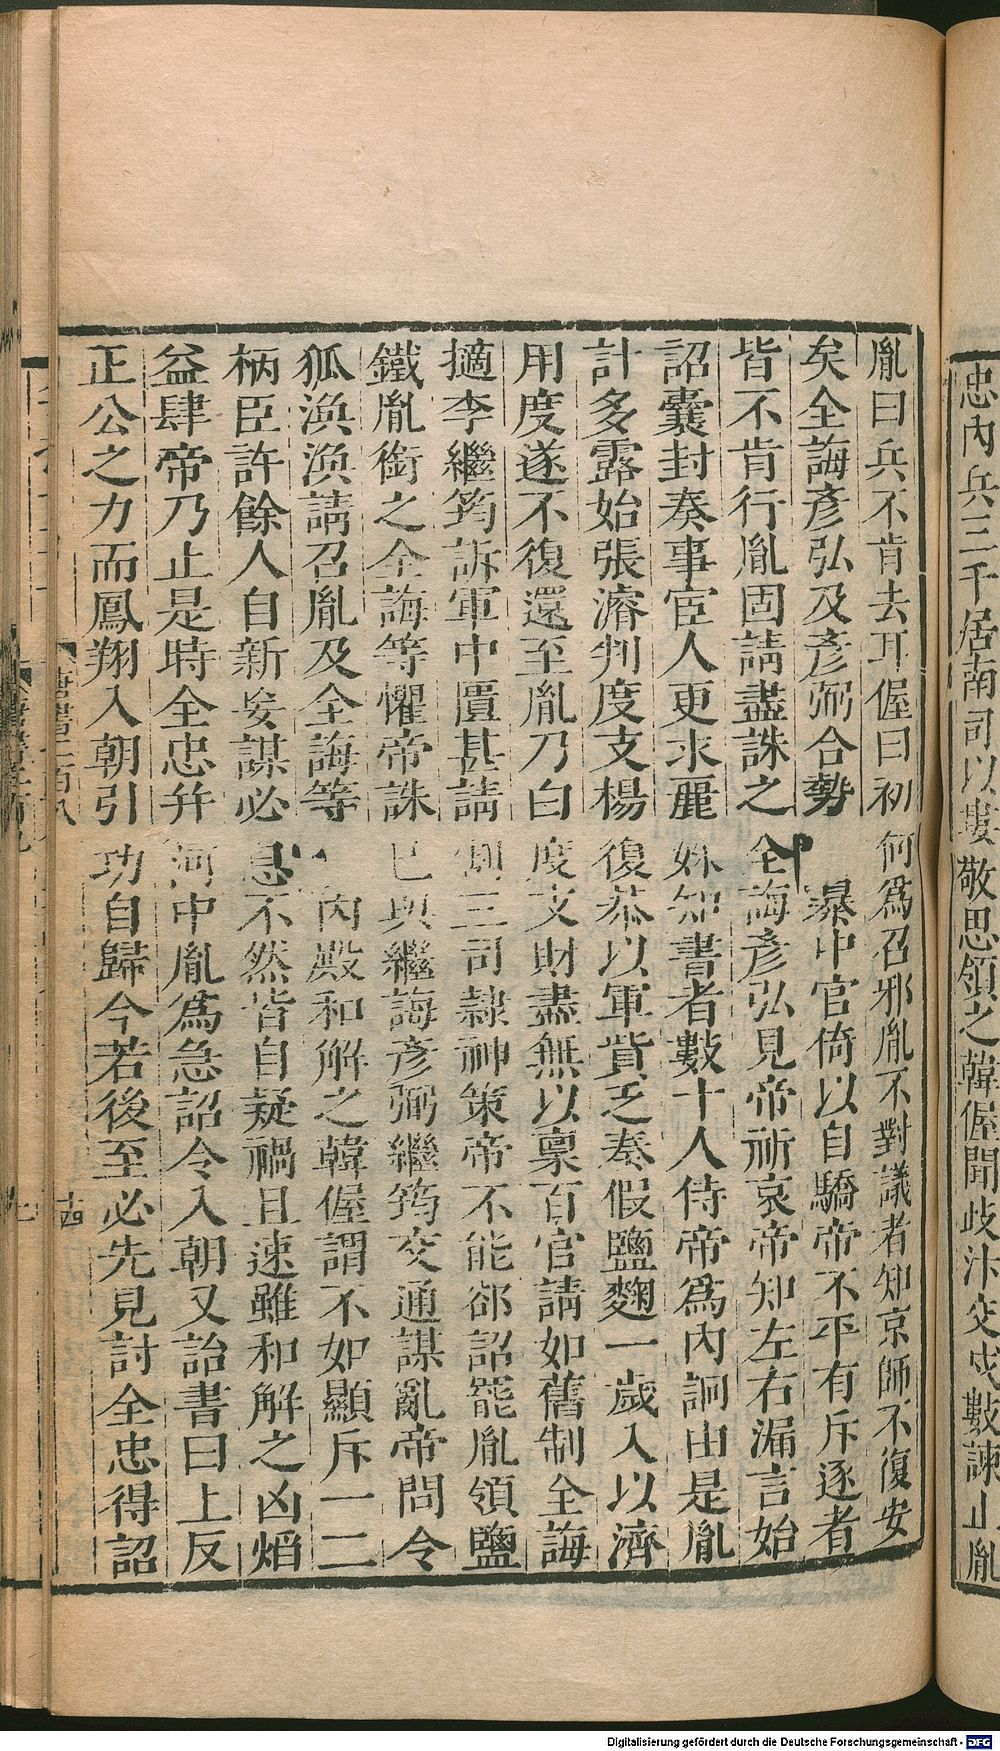 忠內兵三千居南司以婁敬思領之韓偓聞岐汴交戍數諫止胤
胤曰兵不肯去耳偓曰初何爲召邪胤不對議者知京師不復安
矣全誨彥弘及彥弼合勢暴中官倚以自驕帝不平有斥逐者
皆不肯行胤固請盡誅之全誨彥弘見帝祈哀帝知左右漏言始
詔囊封奏事宦人更求麗姝知書者數十人侍帝爲內詗由是胤
計多露始張濬判度支楊復恭以軍貲乏奏假鹽麴一歲入以濟
用度遂不復還至胤乃白度支財盡無以稟百官請如舊制全誨
擿李繼筠訴軍中匱甚請割三司隸神策帝不能郤詔罷胤領鹽
鐵胤銜之全誨等懼帝誅已與繼誨彥弼繼筠交通謀亂帝問令
狐渙渙請召胤及全誨等內殿和解之韓偓謂不如顯斥一二
柄臣許餘人自新妄謀必息不然皆自疑禍且速雖和解之凶熖
益肆帝乃止是時全忠并河中胤爲急詔令入朝又詒書曰上反
正公之力而鳳翔入朝引功自歸今若後至必先見討全忠得詔
唐書二百八
十四
Digitalisierung gefördert durch die Deutsche Forschungsgemeinschaft - DFG